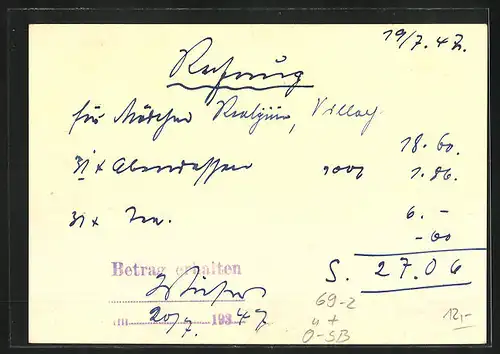 19/7. 47.
Rechnung
für Mädchen Realgym, Villach.
18.60.
31 x Abendessen 10% 1.86.
31 x Tee. 6.-
-60
S. 27.06
Betrag erhalten
am 20/7. 1934 47
69-2
O-SB
12,-